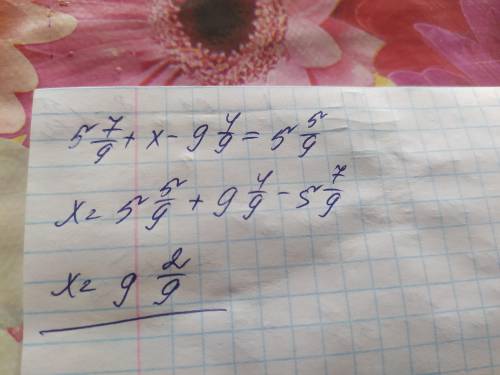 5 7/9 + x - 9 4/9 = 5 5/9
x = 5 5/9 + 9 4/9 - 5 7/9
x = 9 2/9